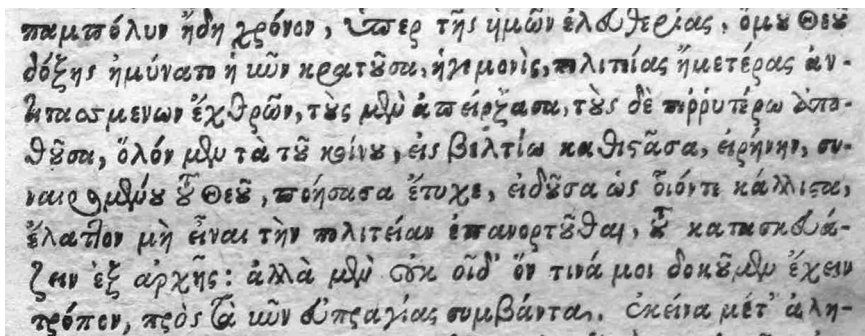 παμπόλυν ἤδη χρόνον, ὑπερ τῆς ἡμῶν ἐλευθερίας, ὁμοῦ Θεοῦ
δόξης ἠμύνατο ἡ νῦν κρατοῦσα, ἡγεμονὶς, πολιτείας ἡμετέρας ἀν-
ἔχθρῶν, τοὺς μὲν ἀπείρξασα, τοὺς δὲ πορρυτέρω ἀπο-
θοῦσα, ὅλόν μὲν τὰ τοῦ κοινοῦ, εἰς βελτίω καθιστᾶσα, εἰρήνην, συ-
ναιρομένου τοῦ Θεοῦ, ποήσασα ἔτυχε, εἰδοῦσα ὡς διόντι κάλλιστα,
ἔλαττον μὴ εἶναι τὴν πολιτείαν ἐπανορτοῦσθαι, τοῦ κατασκευά-
ζειν ἐξ αρχῆς: ἀλλὰ μὲν οὐκ οἶδ' ὅν τινά μοι δοκοῦμεν ἔχειν
τρόπον, πρὸς τὰ νῦν εὐπραγίας συμβάντα. ἐκείνα μέτ' ἀλη-